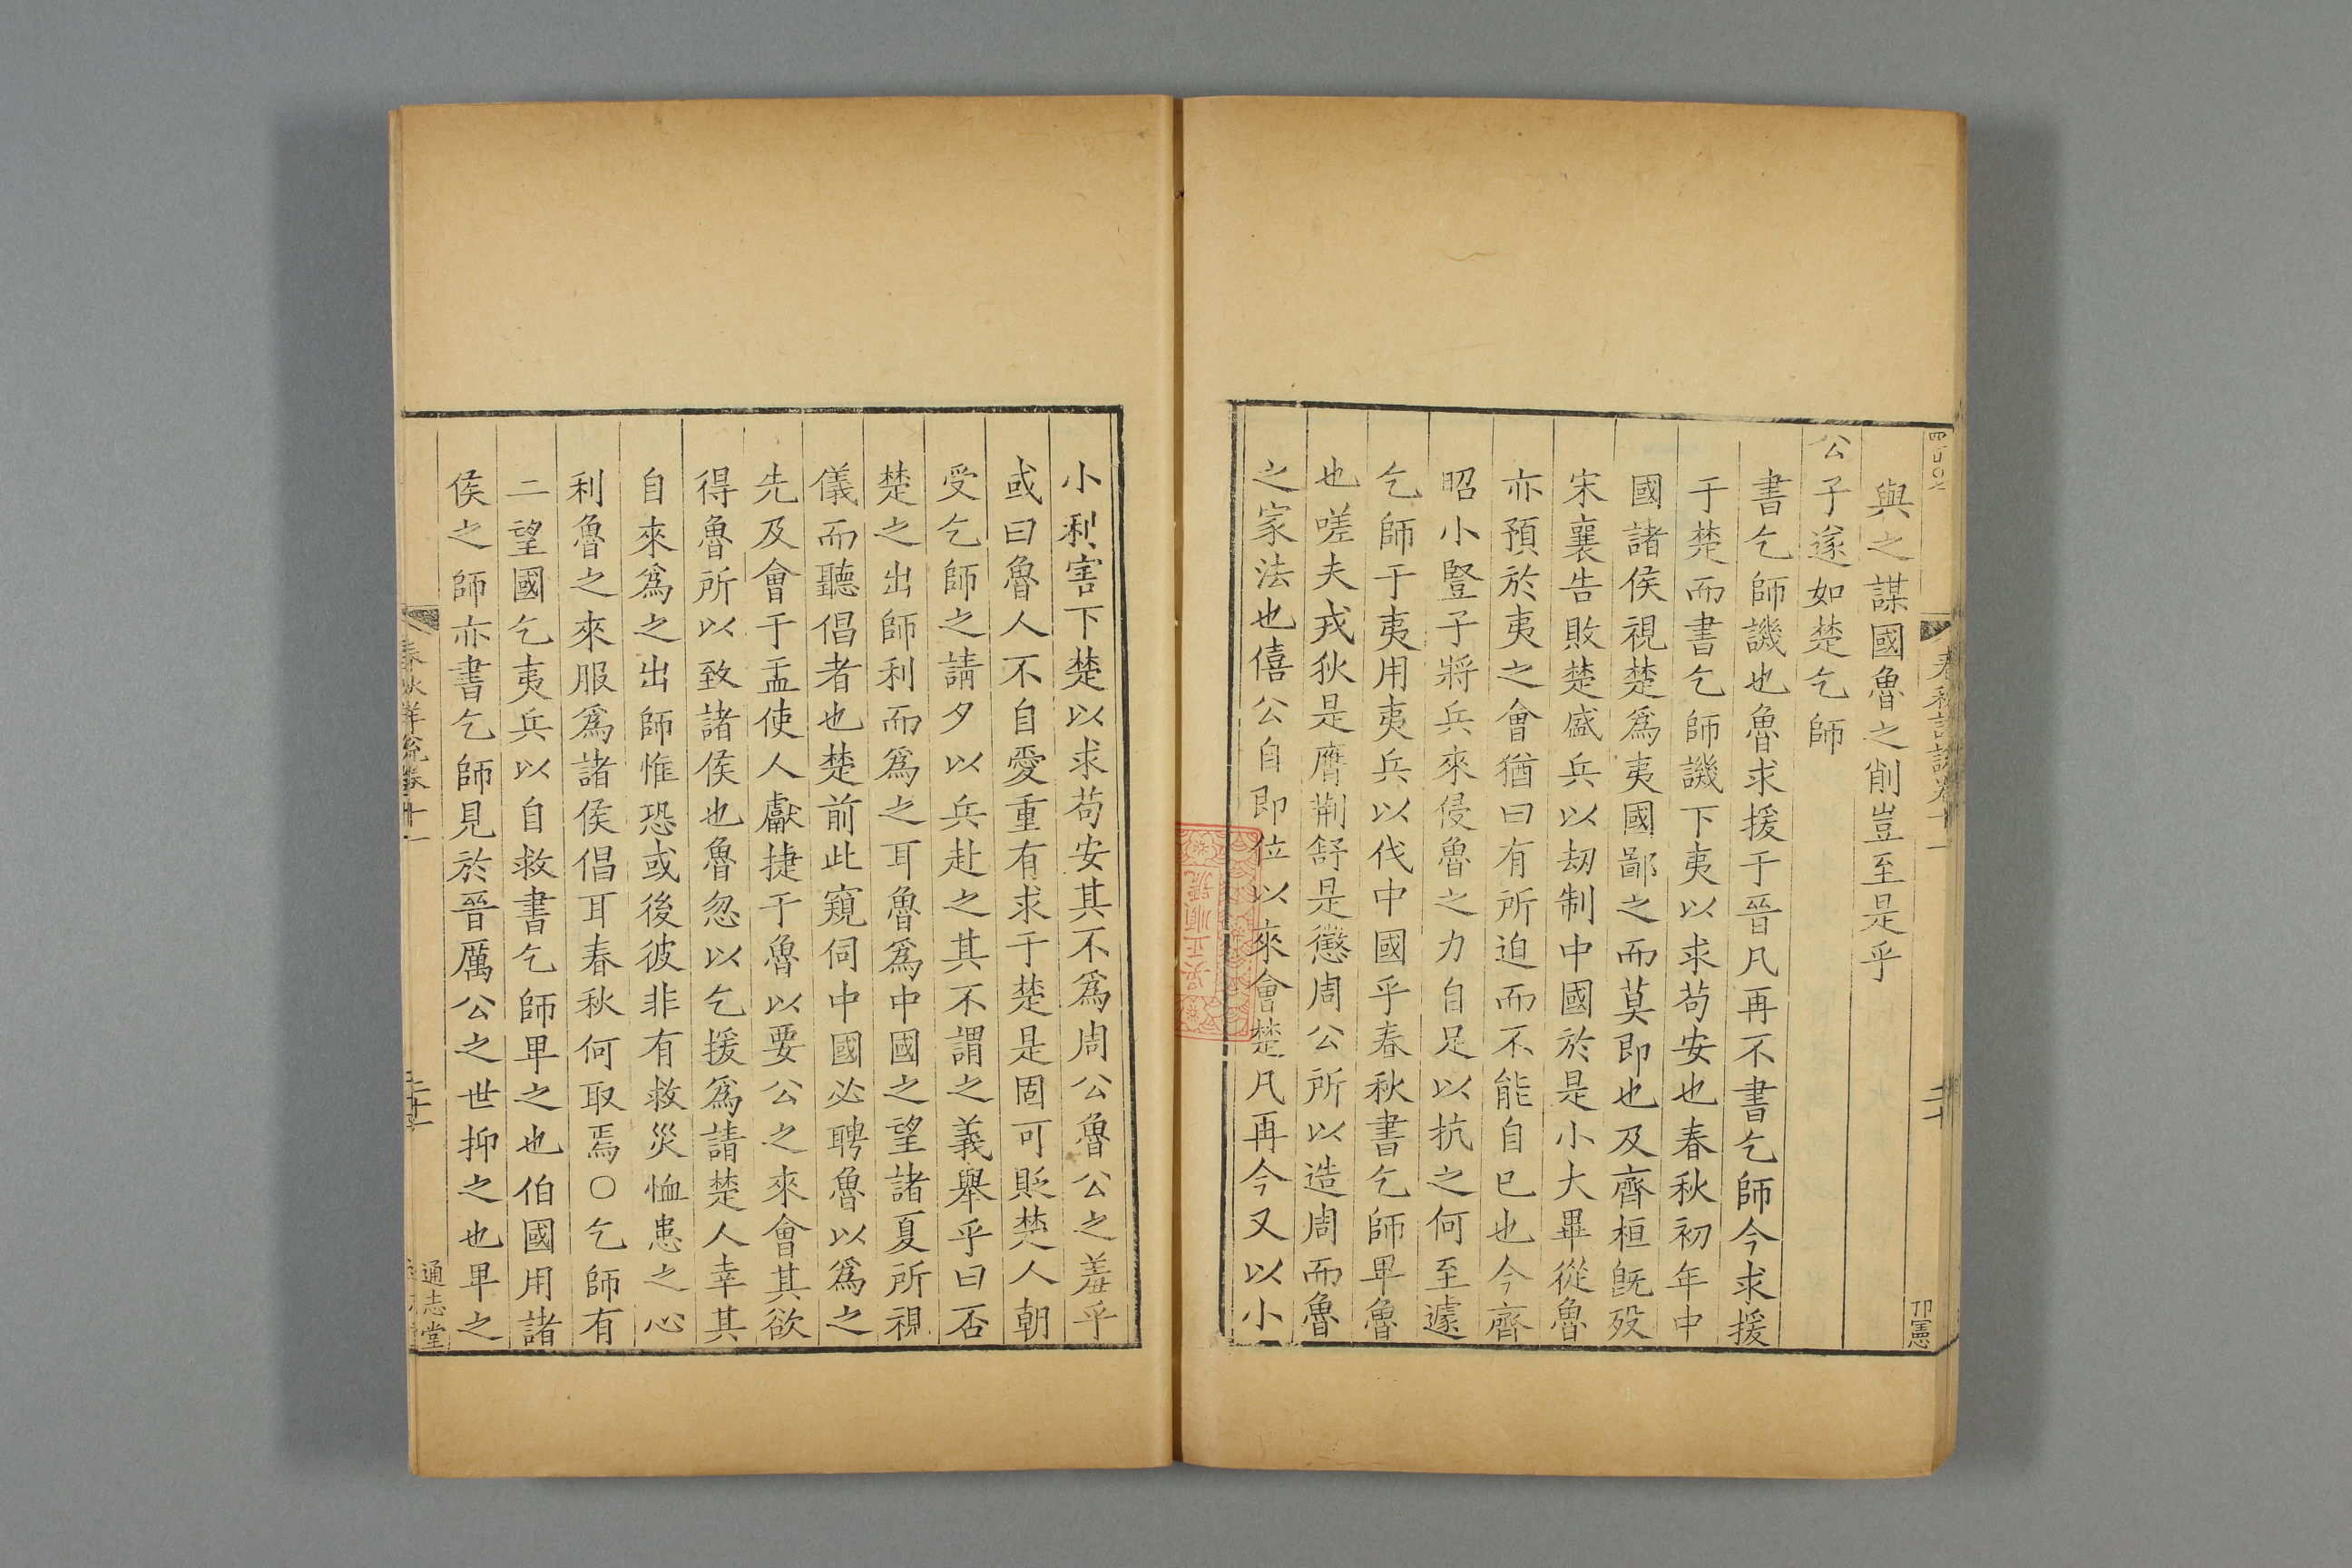 與之謀國魯之削豈至是乎
公子遂如楚乞師
書乞師譏也魯求援于晉凡再不書乞師今求援
于楚而書乞師譏下夷以求苟安也春秋初年中
國諸侯視楚爲夷國鄙之而莫即也及齊桓旣歿
宋襄告敗楚盛兵以刼制中國於是小大畢從魯
亦預於夷之會猶曰有所迫而不能自已也今齊
昭小豎子將兵來侵魯之力自足以抗之何至遽
乞師于夷用夷兵以伐中國乎春秋書乞師卑魯
也嗟夫戎狄是膺荆舒是懲周公所以造周而魯
之家法也僖公自即位以來會楚凡再今又以小
小利害下楚以求苟安其不爲周公魯公之羞乎
或曰魯人不自愛重有求于楚是固可貶楚人朝
受乞師之請夕以兵赴之其不謂之義舉乎曰否
楚之出師利而爲之耳魯爲中國之望諸夏所視
儀而聽倡者也楚前此窺伺中國必聘魯以爲之
先及會于盂使人獻捷于魯以要公之來會其欲
得魯所以致諸侯也魯忽以乞援爲請楚人幸其
自來爲之出師惟恐或後彼非有救災恤患之心
利魯之來服爲諸侯倡耳春秋何取焉○乞師有
二望國乞夷兵以自救書乞師卑之也伯國用諸
侯之師亦書乞師見於晉厲公之世抑之也卑之
春秋詳說卷十一
通志堂